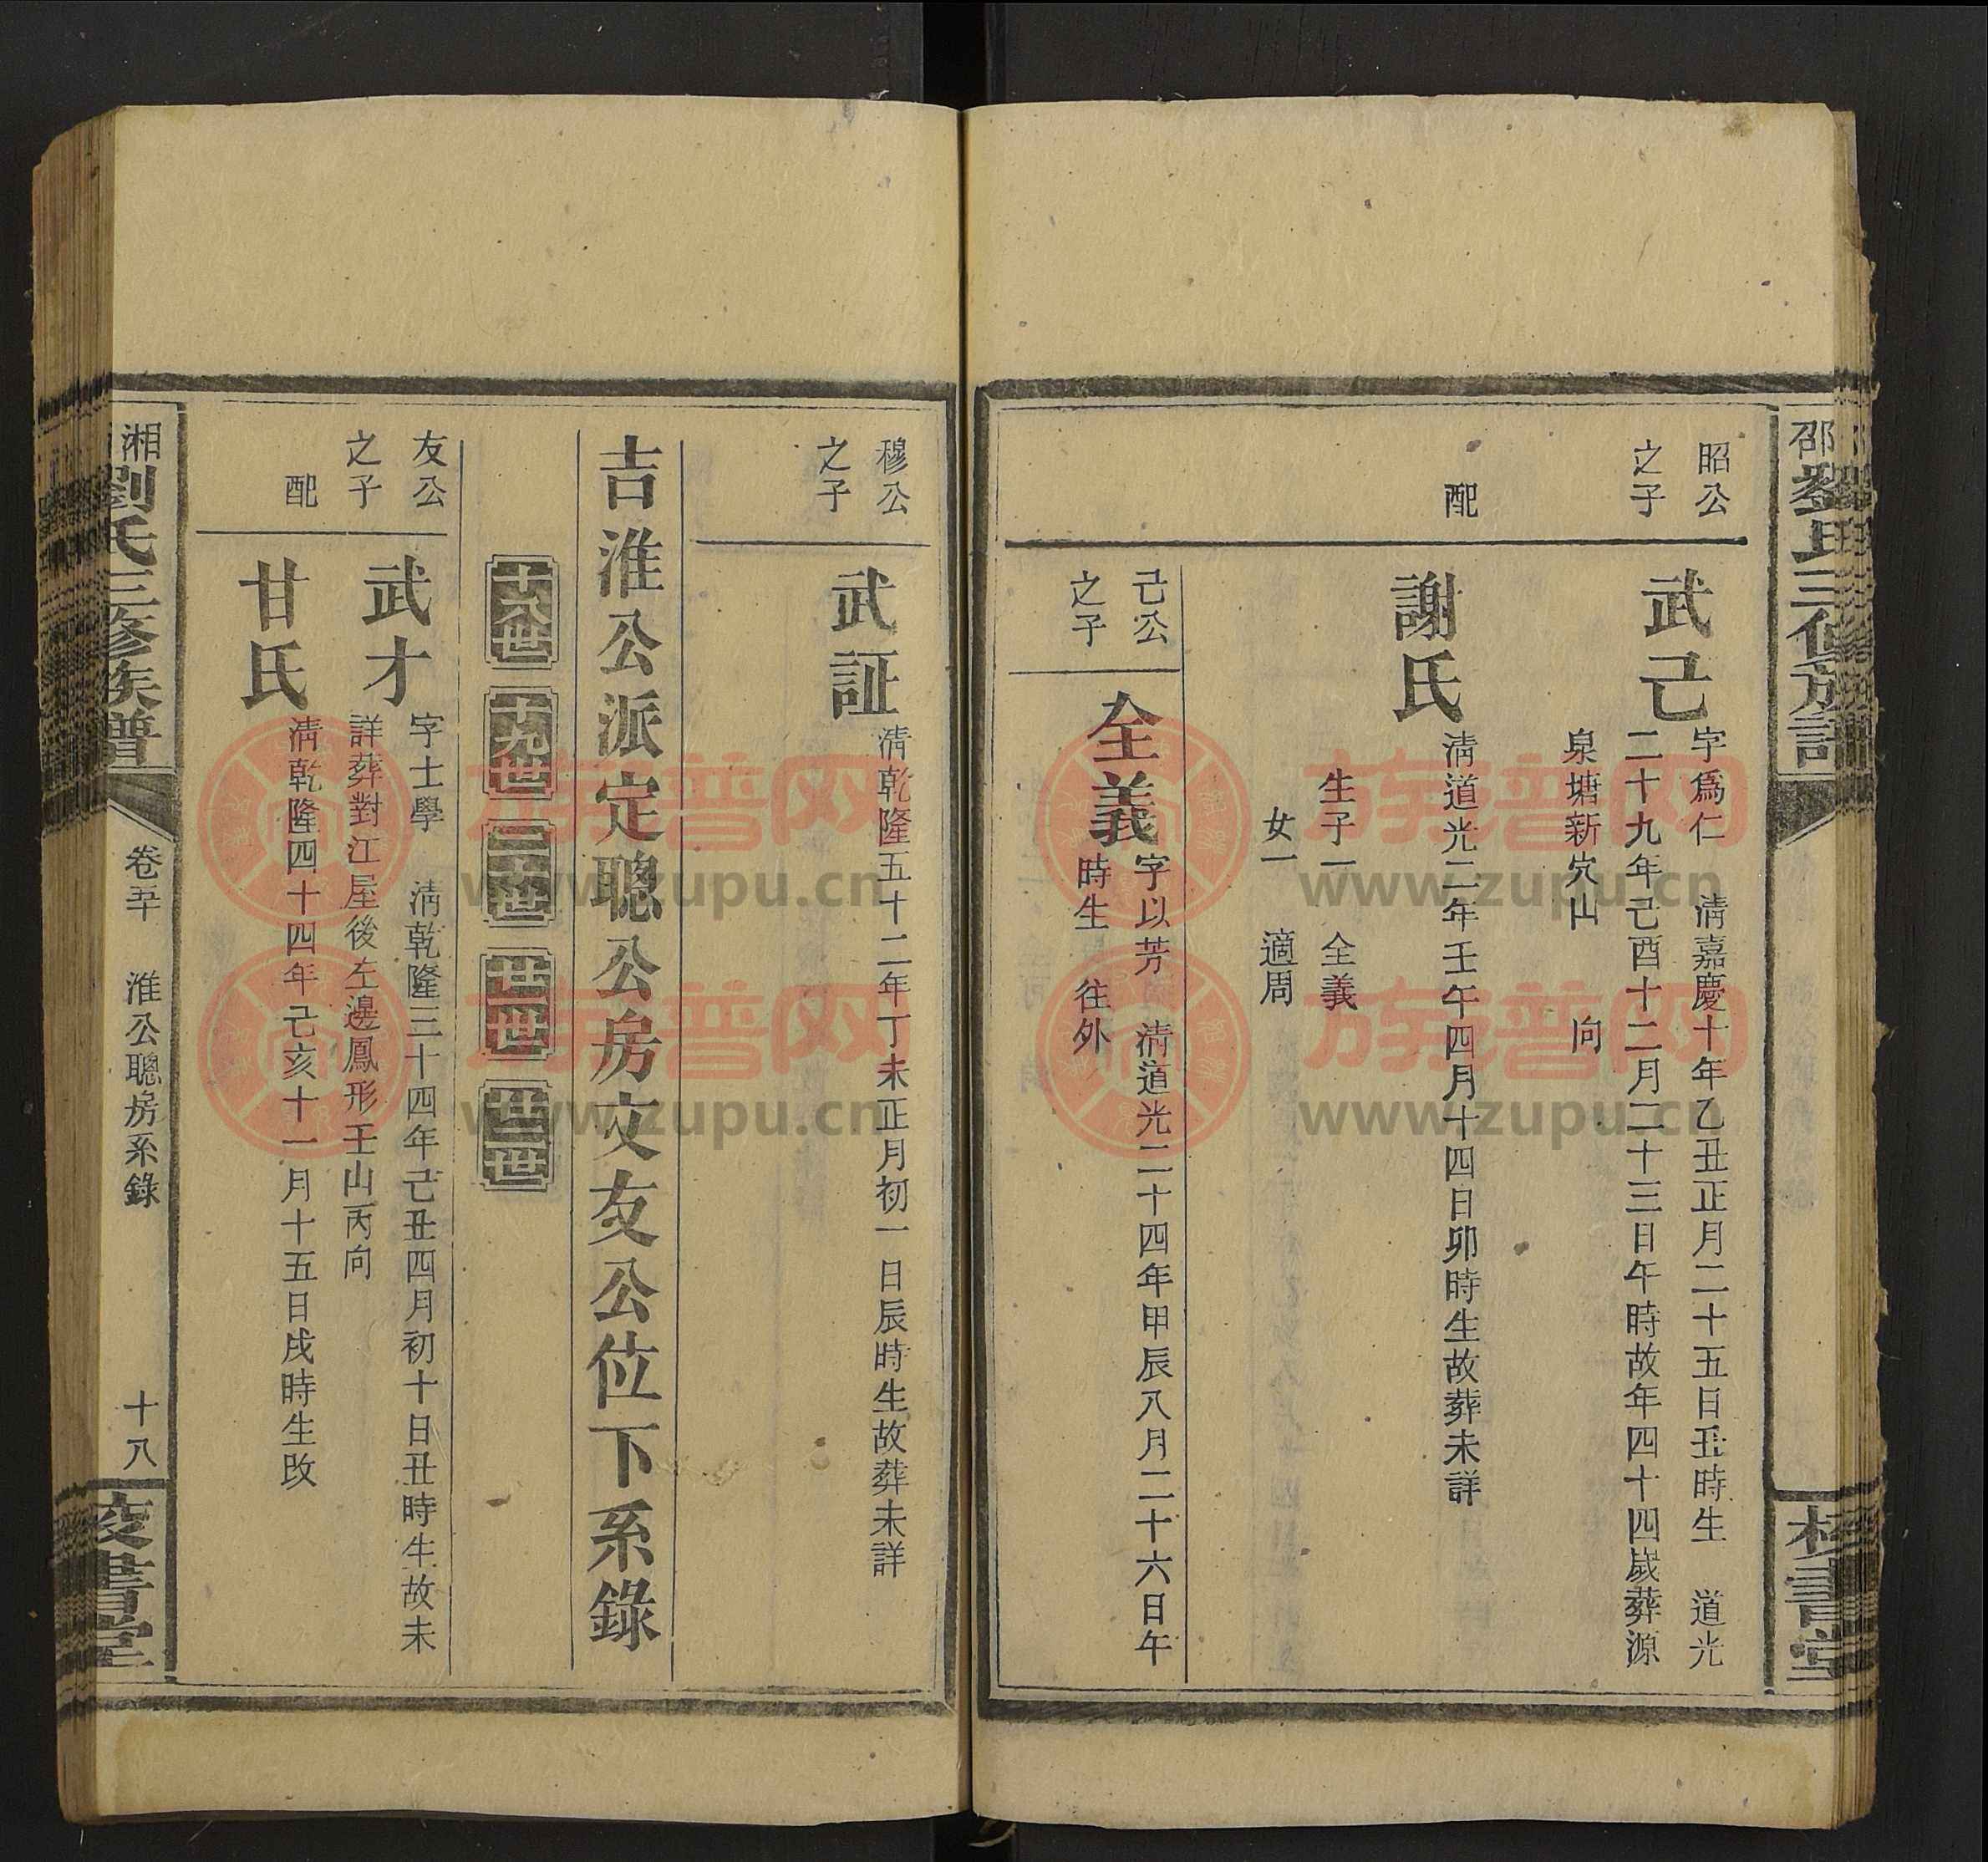 昭公
之子
武己
字爲仁 淸嘉慶十年乙丑正月二十五日丑時生 道光
二十九年己酉十二月二十三日午時故年四十四歲葬源
泉塘新宂山 向
配
謝氏
淸道光二年壬午四月十四日卯時生故葬未詳
生子一 全義
女一 適周
己公
之子
全義
字以芳 淸道光二十四年甲辰八月二十六日午
時生 往外
穆公
之子
武証
淸乾隆五十二年丁未正月初一日辰時生故葬未詳
吉淮公派定聰公房文友公位下系錄
十八世 十九世 二十世 廿一世 廿二世
友公
之子
武才
字士學 淸乾隆三十四年己丑四月初十日丑時生故未
詳葬對江屋後左邊鳳形壬山丙向
配
甘氏
淸乾隆四十四年己亥十一月十五日戌時生改
湘 劉氏三修族譜
卷五 淮公聰房系錄
十八
校書堂
邵 劉氏三修族譜
校書堂
族谱网
www.zupu.cn
族谱网
www.zupu.cn
族谱网
www.zupu.cn
族谱网
www.zupu.cn